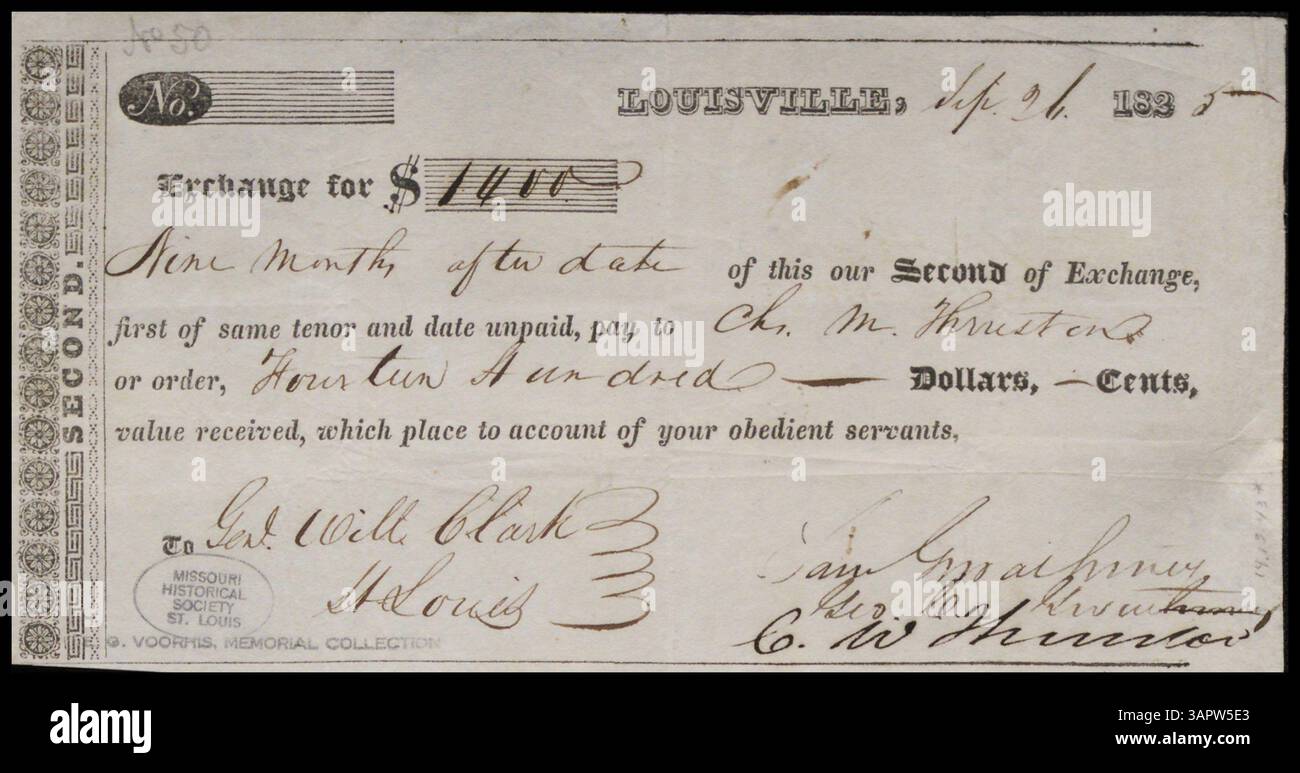 No 50
No.
LOUISVILLE, Sep. 26. 1825
Exchange for $ 1400
Nine Months after date of this our Second of Exchange,
first of same tenor and date unpaid, pay to Ch. M. Thruston
or order, Fourteen Hundred — Dollars, — Cents,
value received, which place to account of your obedient servants,
To Genl. Will. Clark
St Louis
Sam
Geo
C. W. Thruston
SECOND.
MISSOURI
HISTORICAL
SOCIETY
ST. LOUIS
G. VOORHIS, MEMORIAL COLLECTION
alamy
alamy
Image ID: 3APW5E3
www.alamy.com